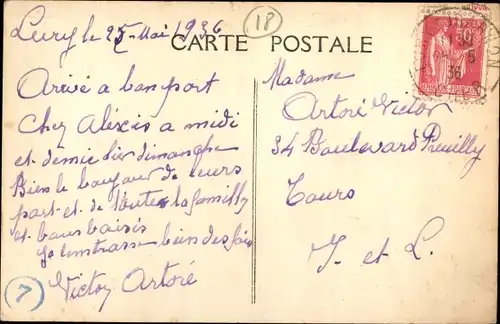 Lury le 25 Mai 1936
18
CARTE POSTALE
Arivé a bon port
Chez Aléxis a midi
et demie hier dimanche
Bien le bonjour de leurs
part et de toutes la famille
et bons baisés
Je bien des fois
Victor Artoré
7
Madame
Artoré Victor
34 Boulevard Preuilly
Tours
I et L.
50c
36